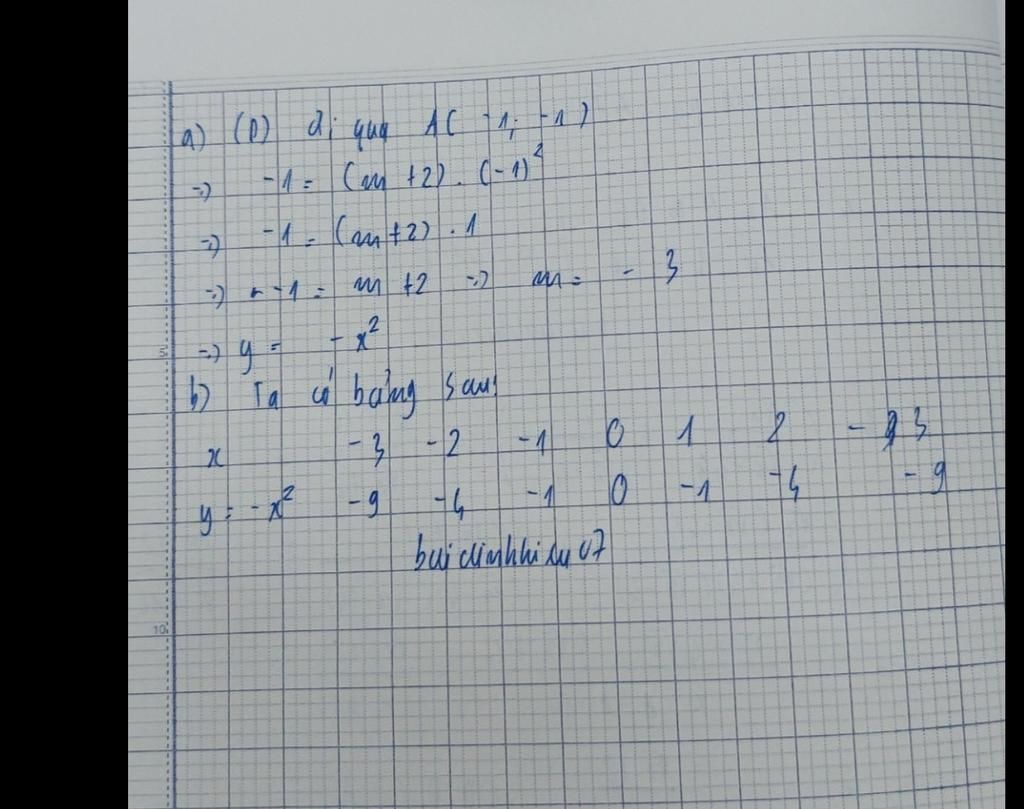 a) (P) đi qua A( -1; -1)
=> -1 = (m +2) . (-1)²
=> -1 = (m+2) . 1
=> -1 = m +2 => m = - 3
5
=> y = - x²
b) Ta có bảng sau:
x -3 -2 -1 0 1 2 - 3
y = -x² -9 -4 -1 0 -1 -4 -9
buidinhhieu07
10